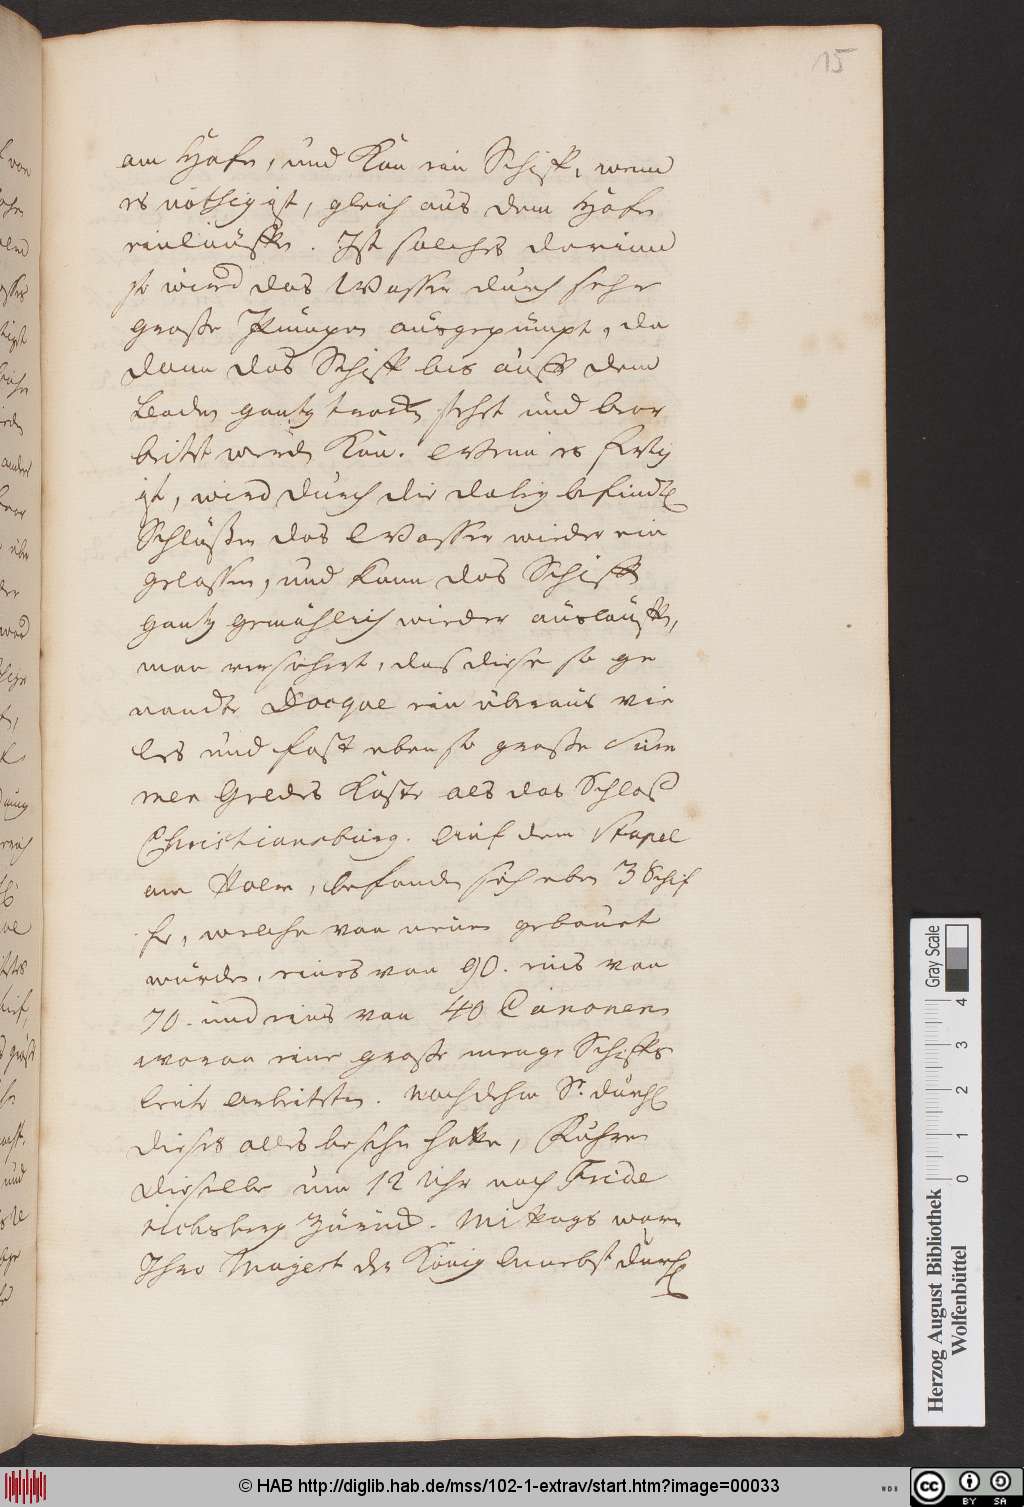 15
am Hafe, und Kan ein Schiff, wenn
es nöthig ist, gleich aus dem Hafe
einlauffen. Ist solches darinn
so wird das Wasser durch sehr
große Pumpen ausgepumpt, da
dann das Schiff bis auff dem
Boden gantz trocken stehet und bear
beitet werden Kan. Wenn es fertig
ist, wird durch die dabey befindl.
Schleußen das Wasser wieder ein
gelassen, und kann das Schiff
gantz gemählich wieder auslauffen,
man versichert, das diese so ge
nandte Docque ein überaus vie
les und fast eben so große Sum
men Geldes Koste als das Schloß
Christiansburg. Auf dem Stapel
am Holm, befanden sich eben 3 Schif
fe, welche von neuen gebauet
wurden, eines von 90. eins von
70. und eins von 40 Canonen
woran eine große menge Schiffs
leute arbeiteten. Nachdehm Sr. durchl.
dieses alles besehen hatten, Fuhren
dieselbe um 12 Uhr nach Fride
richsberg Zurück. Mittags waren
Ihro Majest der König benebst durchl.
Gray Scale
0 1 2 3 4
Herzog August Bibliothek
Wolfenbüttel
© HAB http://diglib.hab.de/mss/102-1-extrav/start.htm?image=00033
WDB
cc BY SA